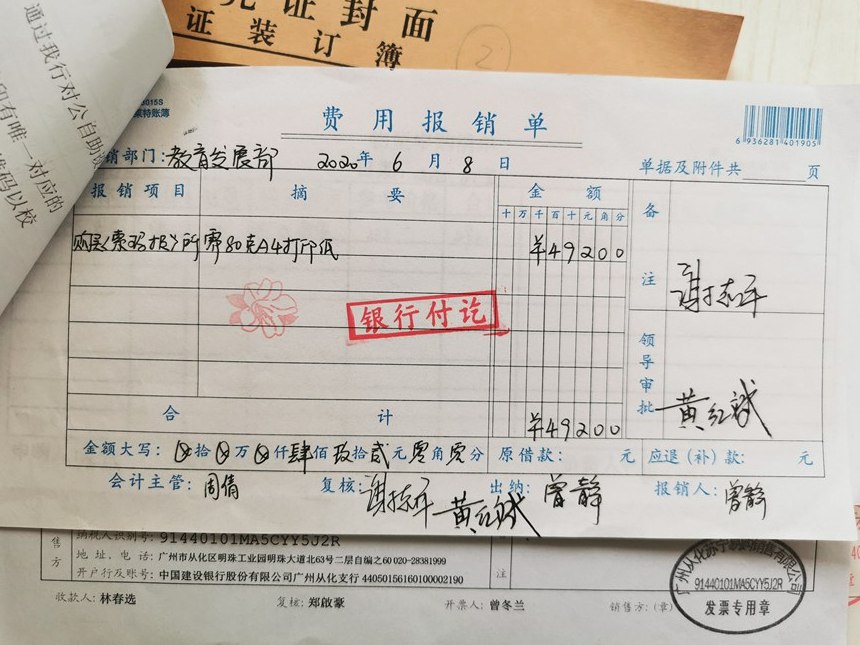 证封面
证装订簿
②
通过我行对公自助
印有唯一对应的
码以校
015S
莱特账簿
费用报销单
6 936281 401905
销部门:教育发展部 2020年6月8日 单据及附件共 页
报销项目 摘要 金额 备注
十万千百十元角分
所需80克A4打印纸 ¥49200
谢志平
银行付讫
领导审批 黄红斌
合计 ¥49200
金额大写:⊗拾⊗万⊗仟肆佰玖拾贰元零角零分 原借款: 元 应退(补)款: 元
会计主管:周倩 复核:谢志平 黄红斌 出纳:曾静 报销人:曾静
售方
纳税人识别号:91440101MA5CYY5J2R
地址、电话:广州市从化区明珠工业园明珠大道北63号二层自编之60 020-28381999
开户行及账号:中国建设银行股份有限公司广州从化支行 44050156160100002190
注
收款人:林春选 复核:郑啟豪 开票人:曾冬兰 销售方:(章)
广州从化苏宁易购销售有限公司
91440101MA5CYY5J2R
发票专用章